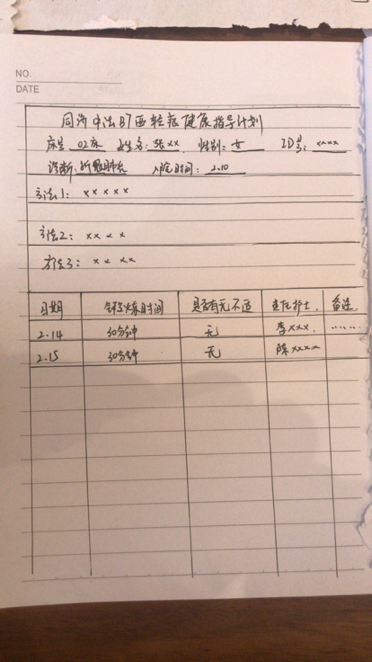 NO.
DATE
同济中法B7西轻症健康指导计划
床号 02床 姓名: 张xx 性别: 女 ID号: xxxx
诊断: 新冠肺炎 入院时间: 2.10
方法1: x x x x x
方法2: x x x x
方法3: x x xx
日期 锻炼时间 是否有无不适 责任护士 备注
2.14 30分钟 无 李xxx. ......
2.15 30分钟 无 陈xxxx